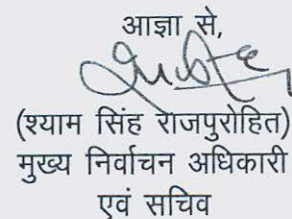 आज्ञा से,
(श्याम सिंह राजपुरोहित)
मुख्य निर्वाचन अधिकारी
एवं सचिव